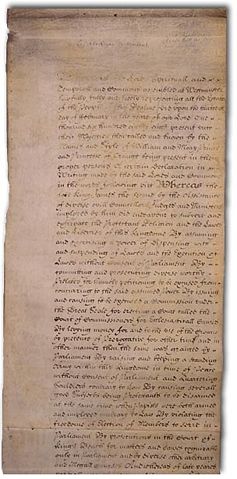 the Lords Spirituall and
Temporall and Comons assembled at Westminster
lawfully fully and freely representing all the Estates
of the People of this Realme did upon the thirteenth
day of February in the yeare of our Lord One
thousand six hundred eighty eight present unto their
Majesties then called and known by the
Names and Stile of William and Mary Prince
and Princesse of Orange being present in their
proper Persons a certain Declaration in
Writing made by the said Lords and Comons
in the words following viz Whereas the
late King James the Second by the Assistance
of diverse evill Councellors Judges and Ministers
imployed by him did endeavour to subvert and
extirpate the Protestant Religion and the Lawes
and Liberties of this Kingdome By assuming
and exercising a power of dispensing with
and suspending of Lawes and the execution of
Lawes without consent of Parliament By
comitting and prosecuting diverse worthy
Prelates for humbly petitioning to be excused from
concurring to the said assumed power By issuing
and causing to be executed a Commission under
the Great Seale for erecting a Court called the
Court of Commissioners for Ecclesiasticall Causes
By levying money for and to the use of the Crowne
by pretence of Prerogative for other time and in
other manner then the same was granted by
Parliament By raising and keeping a standing
Army within this Kingdome in time of Peace
without consent of Parliament and Quartering
Souldiers contrary to Law By causing severall
good Subjects being Protestants to be disarmed
at the same time when Papists were both armed
and employed contrary to Law By violating the
freedome of Election of Members to serve in
Parliament By prosecutions in the Court of
Kings Bench for matters and causes cognizable
only in Parliament and by diverse other arbitrary
and illegall courses And whereas of late yeares